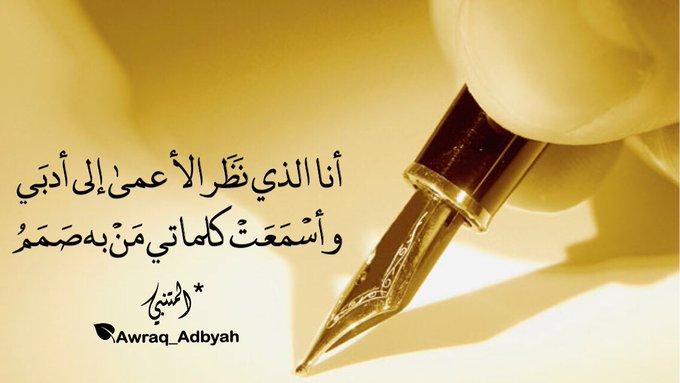 أنا الذي نَظَر الأعمىٰ إلى أدبَي
وأسْمَعَتْ كلماتي مَنْ به صَمَمُ
*المتنبي
Awraq_Adbyah